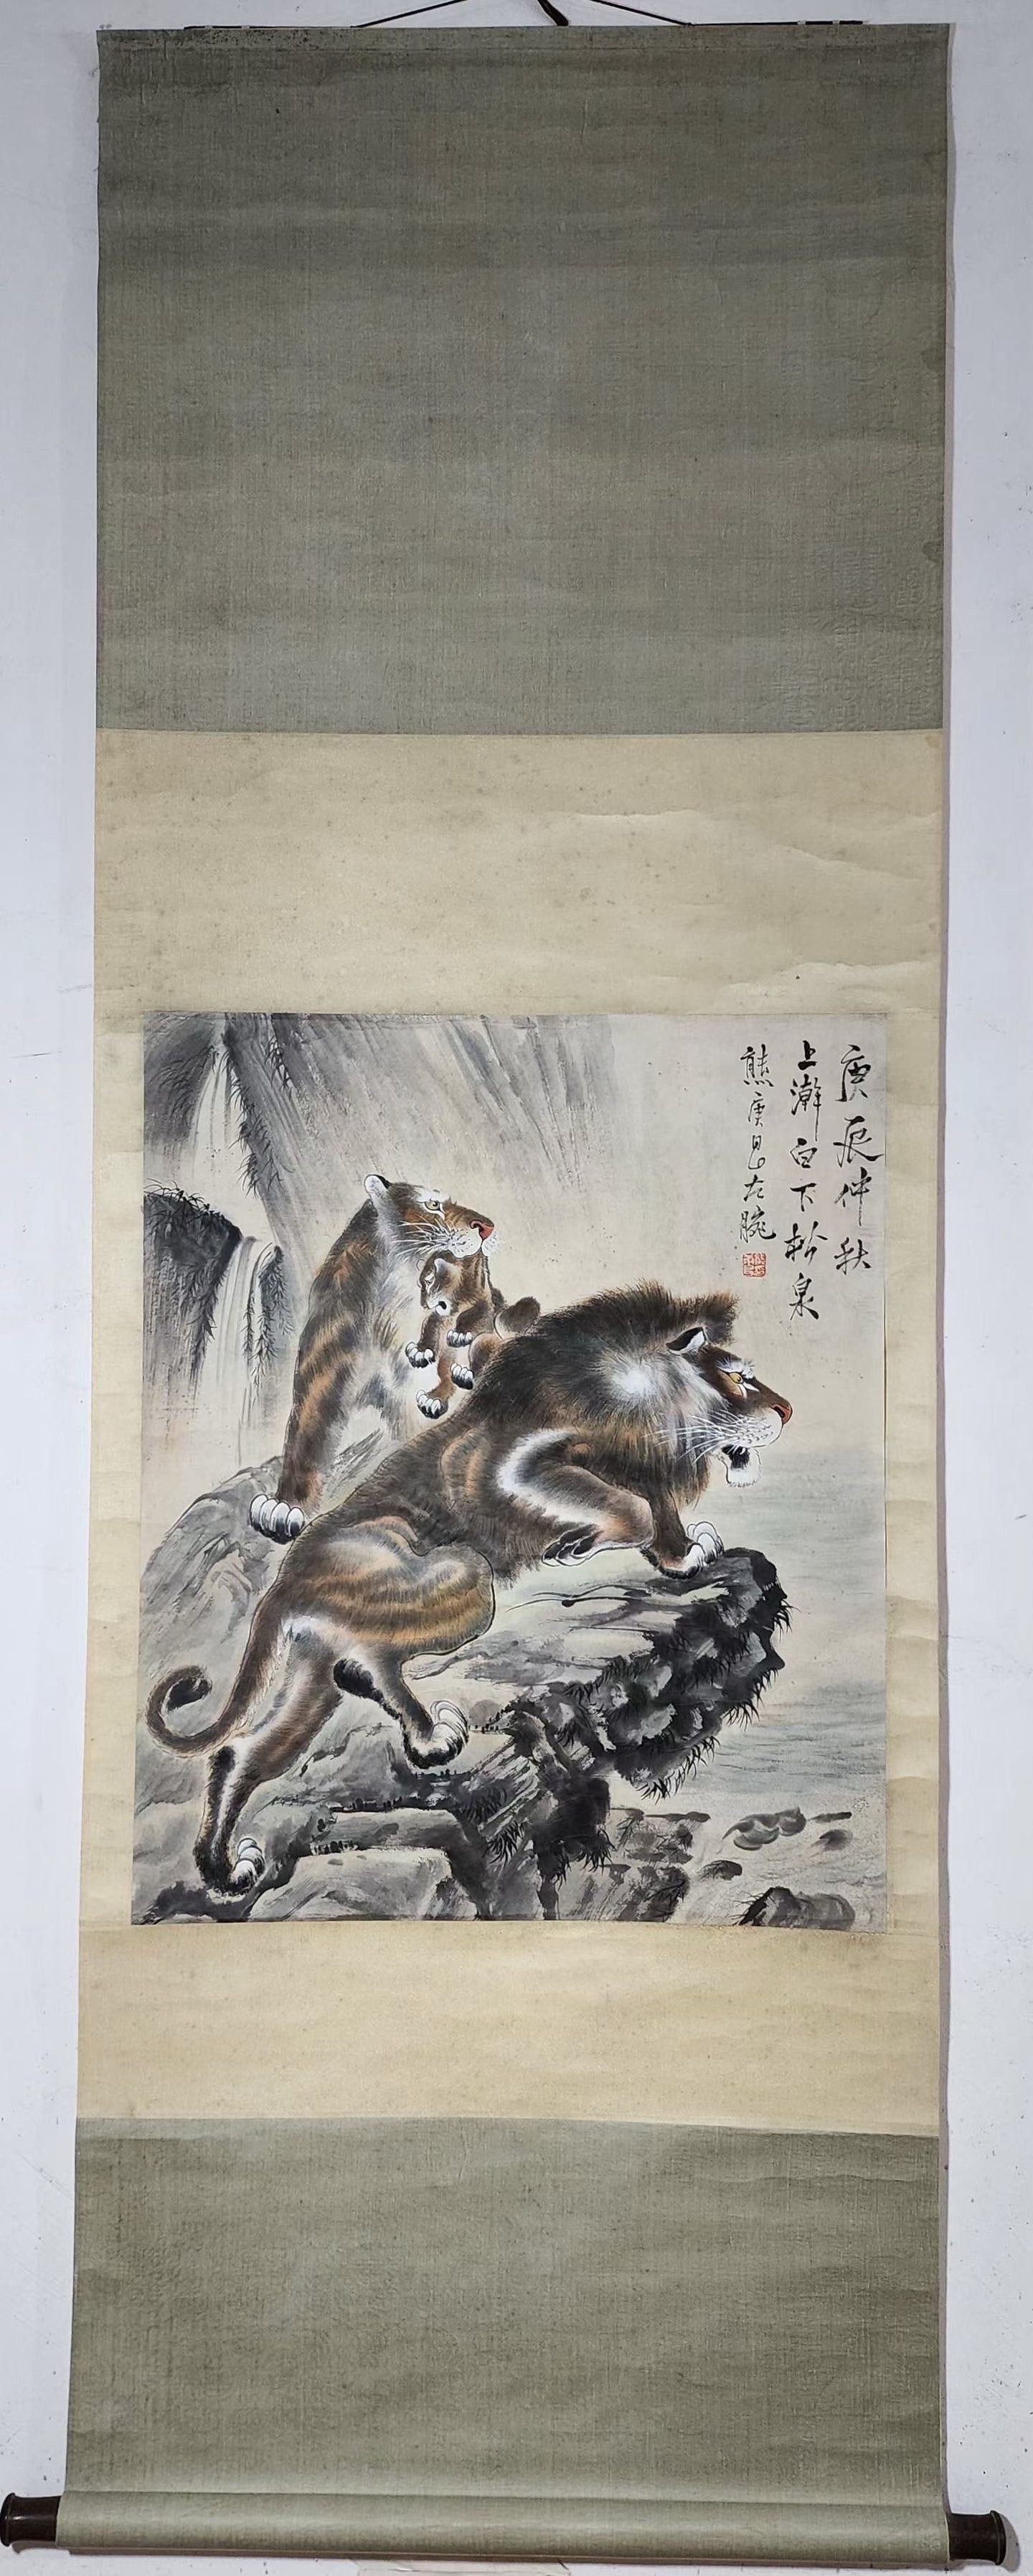 庚辰仲秋
上澣白下松泉
熊庚昌左腕